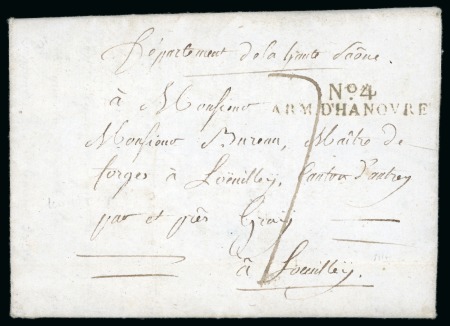 Département de la haute Saône.
à Monsieur
No. 4
ARM. D'HANOVRE
Monsieur Bureau, Maître de
forges à Loëuilley, Canton d'autrey
par et près Gray
à Loëuilley.
7